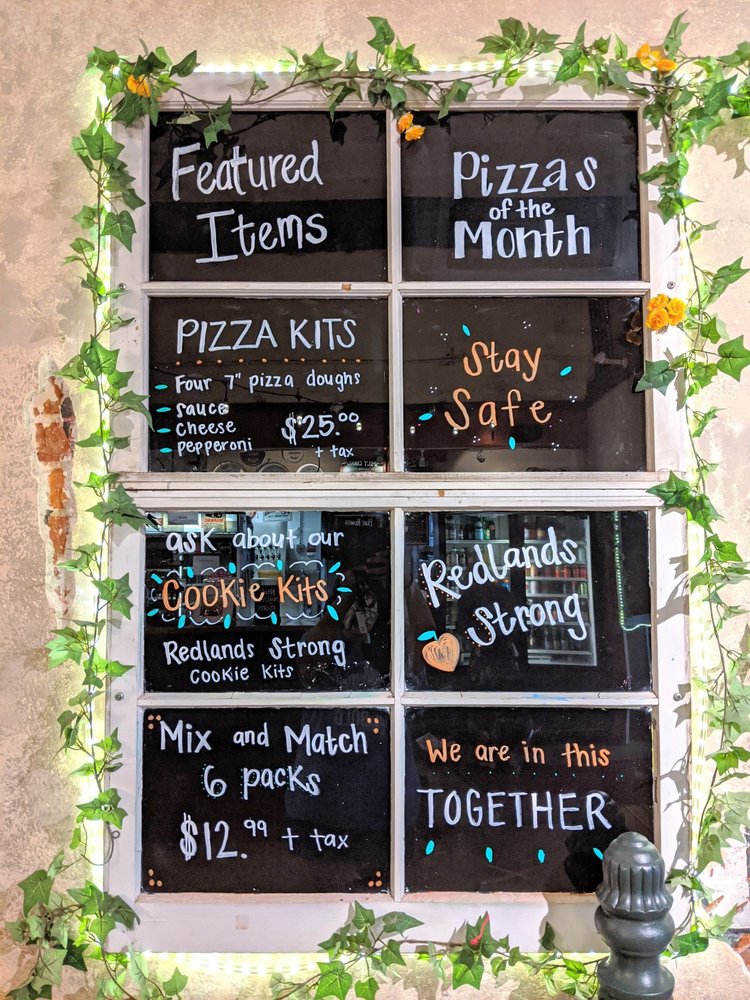 Featured
Items
Pizzas
of the
Month
PIZZA KITS
Four 7" pizza doughs
sauce
cheese
pepperoni
$25.00
+ tax
Stay
Safe
ask about our
Cookie Kits
Redlands Strong
Cookie Kits
Redlands
Strong
Mix and Match
6 packs
$12.99 + tax
We are in this
TOGETHER